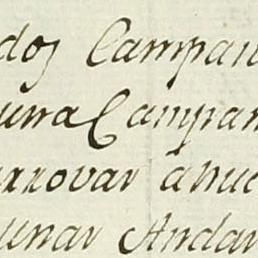 dos Campan
urra Campan
rrovar a nue
unar Andar